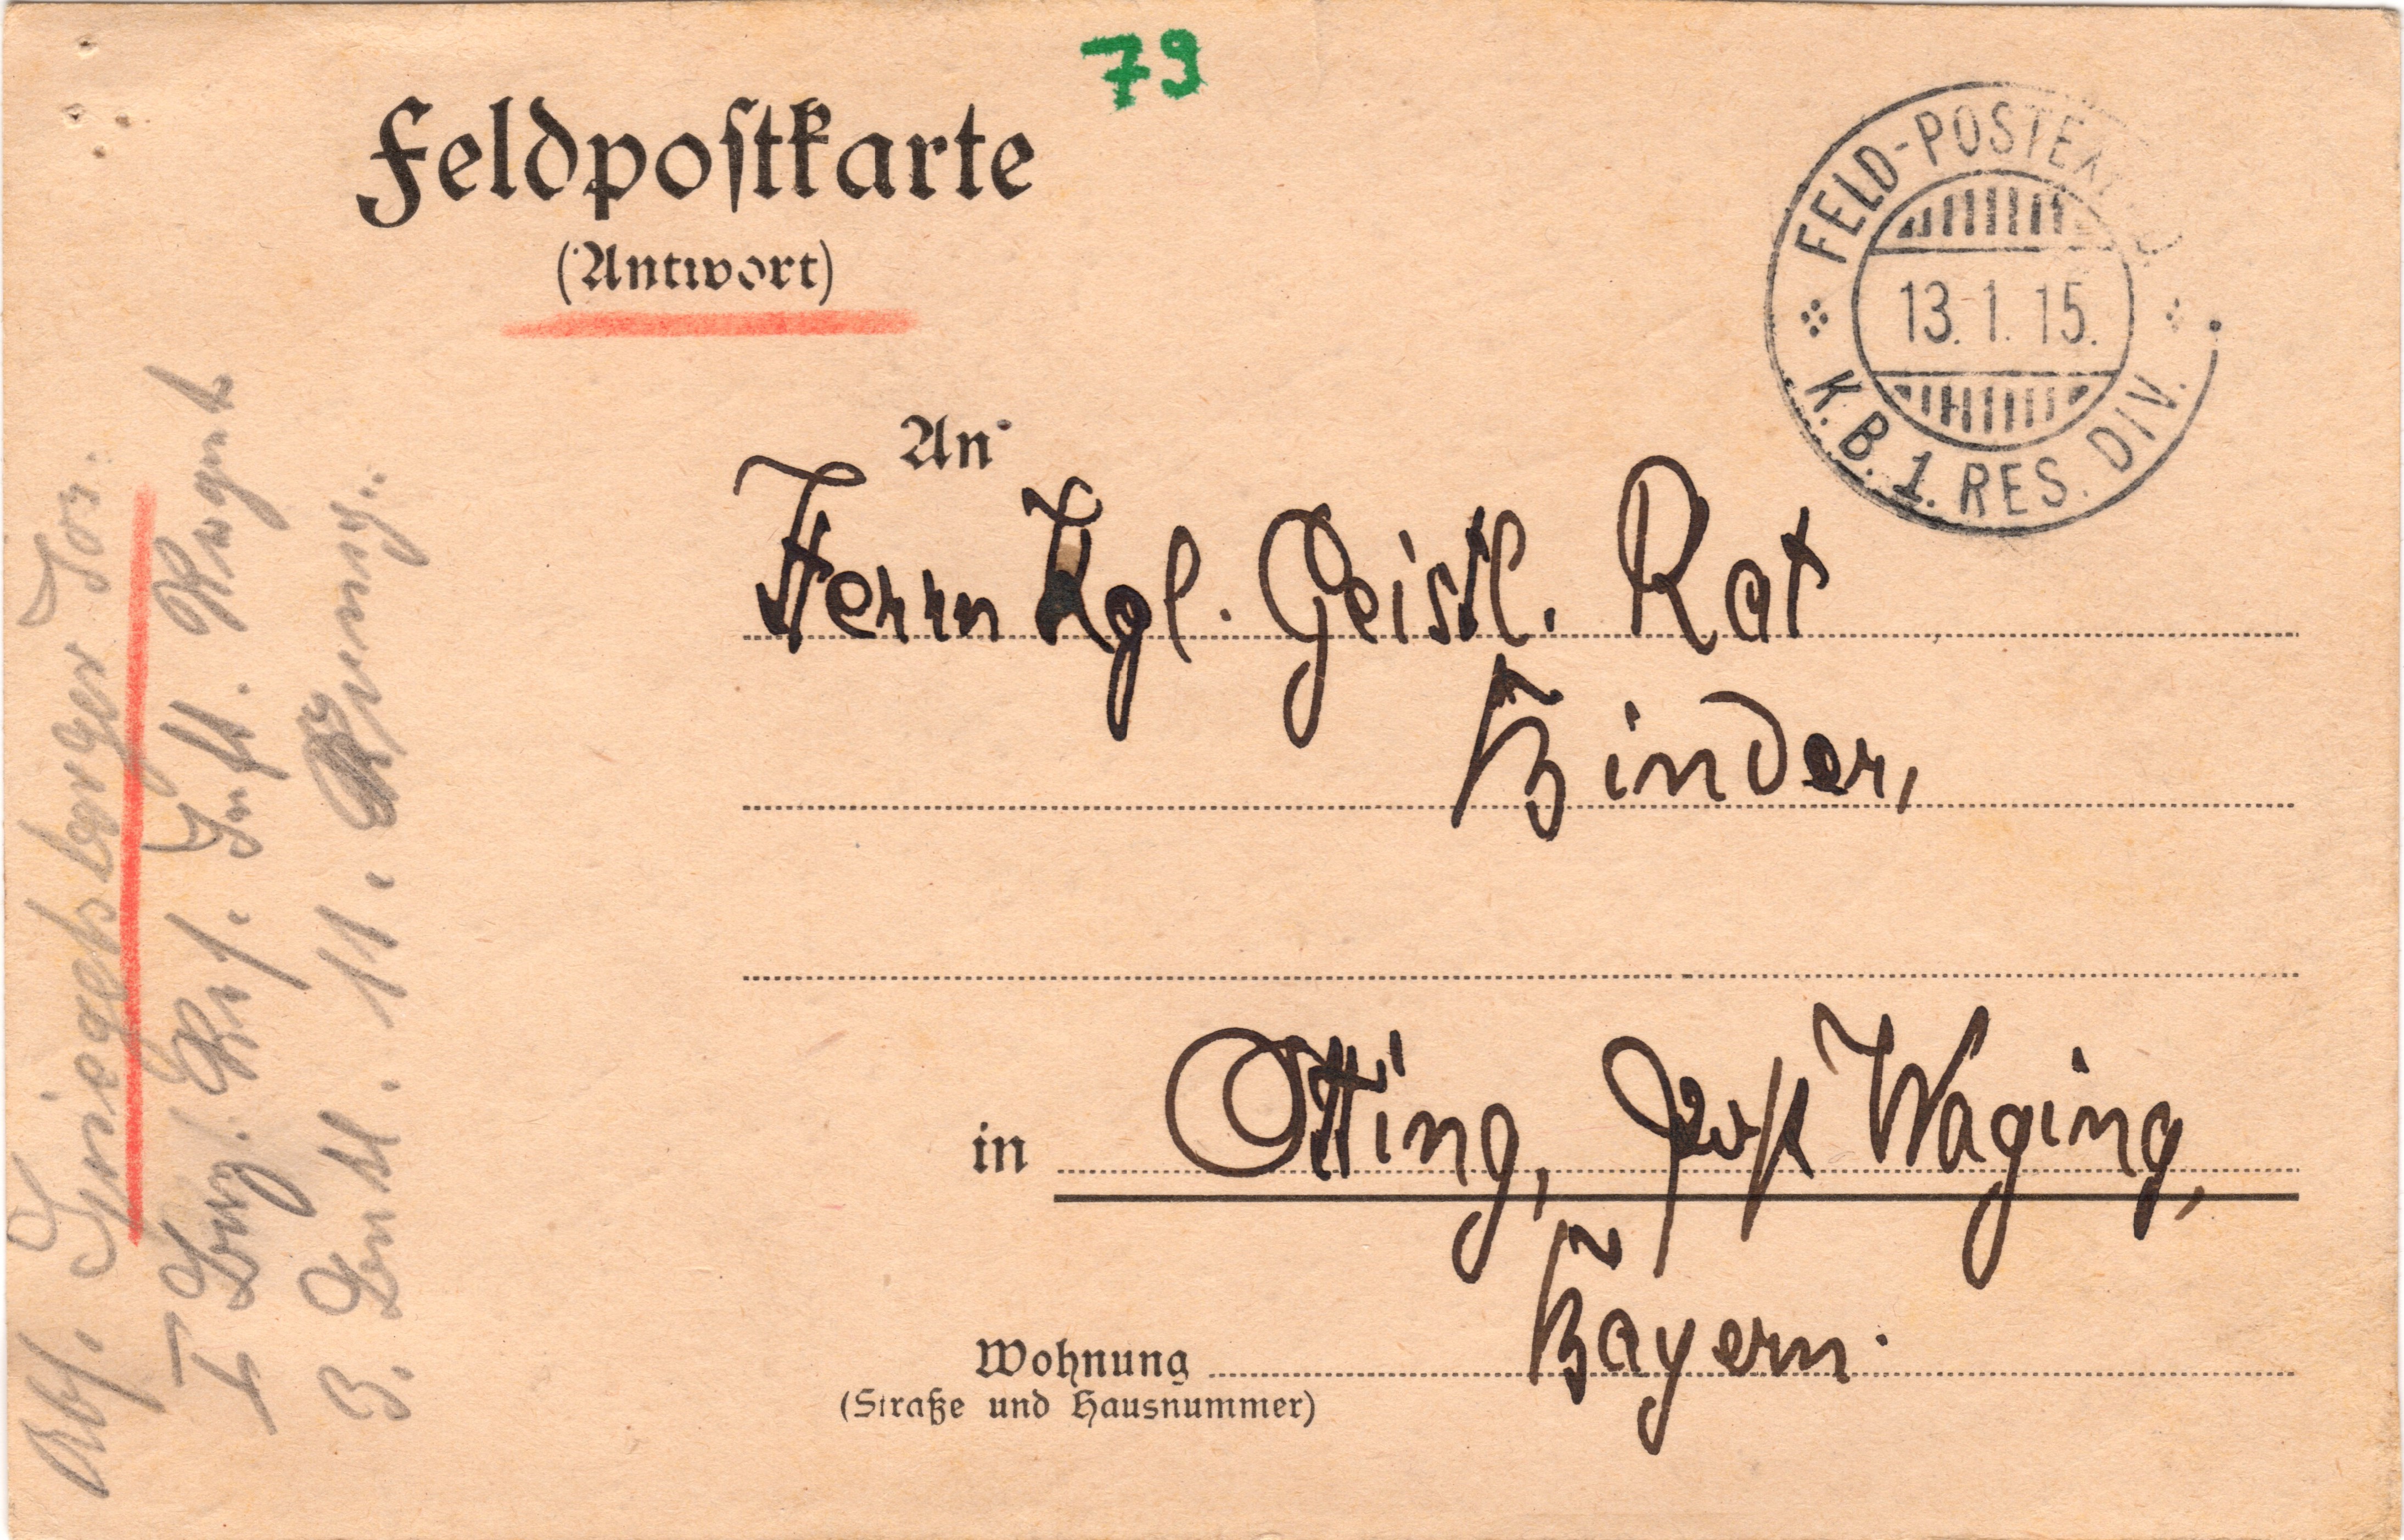 79
Feldpostkarte
(Antwort)
FELD-POSTEX
13.1.15.
K.B. 1. RES. DIV.
An
Herrn Kgl. Geistl. Rat
Binder,
in Otting, Post Waging,
Bayern.
Wohnung
(Straße und Hausnummer)
Abs. Jos.
I Res. Inft. Regmt
3. 11.